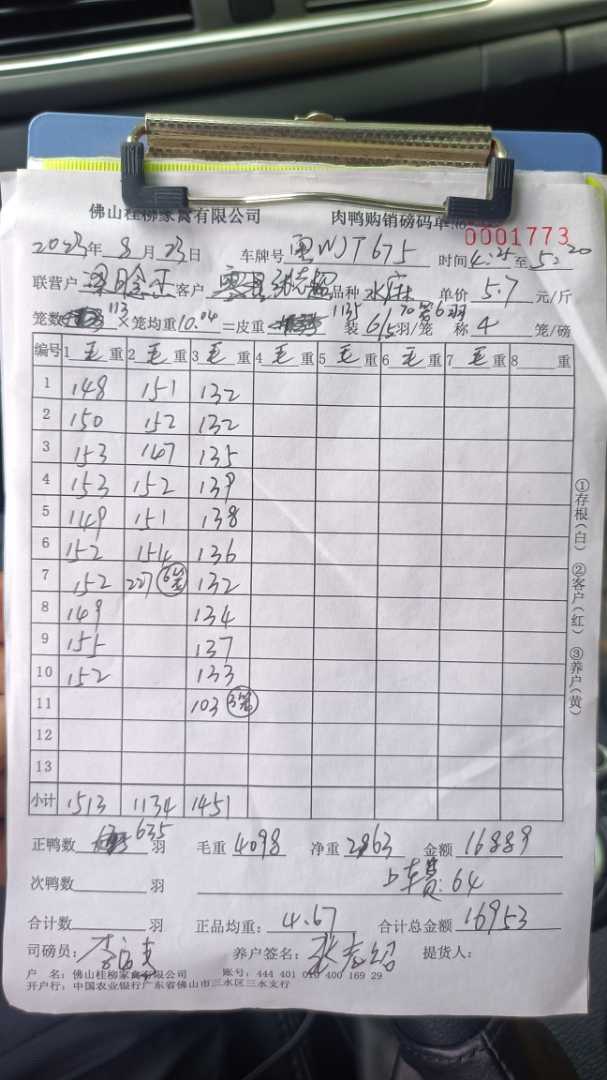 佛山桂柳家禽有限公司 肉鸭购销磅码单 0001773
2023年 8 月 23日 车牌号 粤WJT675 时间 4:25 至 5:20
联营户 客户 张志超 品种 水麻 单价 5.7 元/斤
笼数 113 ×笼均重 10.04 =皮重 1135 装 6/5 羽/笼 70笼6羽 称 4 笼/磅
编号 1 毛 重 2 毛 重 3 毛 重 4 毛 重 5 毛 重 6 毛 重 7 毛 重 8 重
1 148 151 132
2 150 152 132
3 153 147 135
4 153 152 139
5 149 151 138
6 152 154 136
7 152 227 6笼 132
8 149 134
9 155 137
10 152 133
11 103 3笼
12
13
小计 1513 1134 1451
正鸭数 635 羽 毛重 4098 净重 2963 金额 16889
次鸭数 羽 上车费: 64
合计数 羽 正品均重: 4.67 合计总金额 16953
司磅员: 养户签名: 提货人:
户 名: 佛山桂柳家禽有限公司 账号: 444 401 010 400 169 29
开户行: 中国农业银行广东省佛山市三水区三水支行
①存根(白) ②客户(红) ③养户(黄)